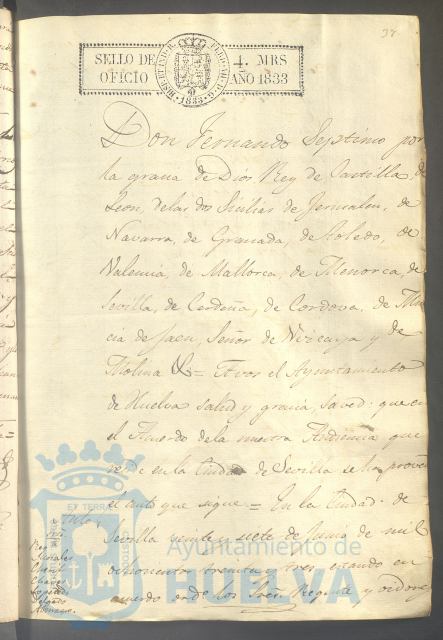 37
SELLO DE
OFICIO
4. MRS
AÑO 1833
1833
Don Fernando Septimo por
la gracia de Dios Rey de Castilla, de
Leon, de las dos Sicilias de Jerusalen, de
Navarra, de Granada, de Toledo, de
Valencia, de Mallorca, de Menorca, de
Sevilla, de Cerdeña, de Cordova, de Mur
cia de Jaen, Señor de Vizcaya y de
Molina &= A vos el Ayuntamiento
de Huelva salud y gracia, saved: que en
el Acuerdo de la nuestra Audiencia que
reside en la Ciudad de Sevilla se ha proveido
el auto que sigue = En la Ciudad de
Sevilla veinte y siete de Junio de mil
ochocientos treinta y tres, estando en
acuerdo ordo los Sres. Regente y oidores
Ayuntamiento de
HUELVA